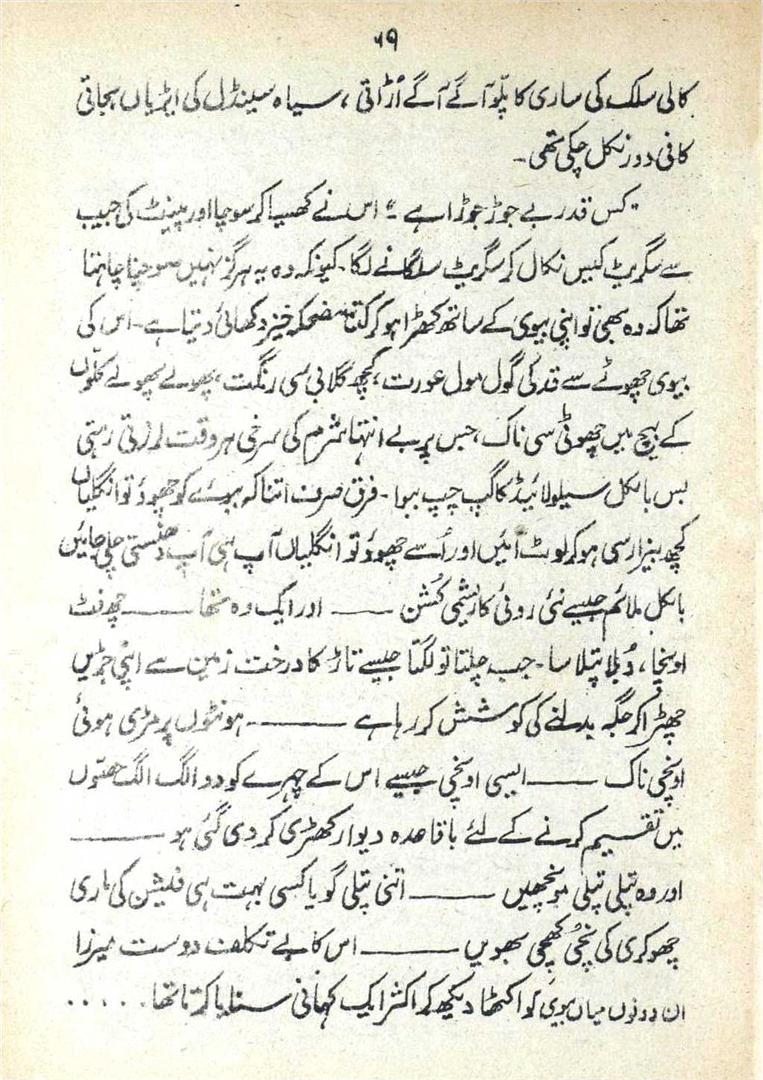 ۶۹
کالی سلک کی ساری کا پلّو آگے آگے اُڑاتی ، سیاہ سینڈل کی ایڑیاں بجاتی
کافی دور نکل چکی تھی ۔
"کس قدر بے جوڑ جوڑا ہے " اس نے کھسیا کر سوچا اور پینٹ کی جیب
سے سگریٹ کیس نکال کر سگریٹ سلگانے لگا ۔ کیونکہ وہ یہ ہرگز نہیں سوچنا چاہتا
تھا کہ وہ بھی تو اپنی بیوی کے ساتھ کھڑا ہو کر کتنا مضحکہ خیز دکھائی دیتا ہے ۔ اس کی
بیوی چھوٹے سے قد کی گول مول عورت ، کچھ گلابی سی رنگت ، پھولے پھولے کلّوں
کے بیچ میں چھوٹی سی ناک ، جس پر بے انتہا شرم کی سرخی ہر وقت لرزتی رہتی
بس بالکل سیلولائیڈ کا گپ چپ ببوا ۔ فرق صرف اتنا کہ ببوے کو چھوؤ تو انگلیاں
کچھ بیزار سی ہو کر لوٹ آئیں اور اُسے چھوؤ تو انگلیاں آپ ہی آپ دھنستی چلی جائیں
بالکل ملائم جیسے نئی روئی کا ریشمی کُشن ـــــ اور ایک وہ تھا ـــــ چھ فٹ
اونچا ، دُبلا پتلا سا ۔ جب چلتا تو لگتا جیسے تاڑ کا درخت زمین سے اپنی جڑیں
چھڑا کر جگہ بدلنے کی کوشش کر رہا ہے ـــــــ ۔ ہونٹوں پر مڑی ہوئی
اونچی ناک ـــــ ایسی اونچی جیسے اس کے چہرے کو دو الگ الگ حصّوں
میں تقسیم کرنے کے لئے باقاعدہ دیوار کھڑی کر دی گئی ہو ـــــــ
اور وہ پتلی پتلی مونچھیں ـــــــ اتنی پتلی گویا کسی بہت ہی فیشن کی ماری
چھوکری کی نُچی کھُچی بھویں ـــــــ اس کا بے تکلف دوست میرزا
ان دونوں میاں بیوی کو اکٹھا دیکھ کر اکثر ایک کہانی سنایا کرتا تھا . . . . .